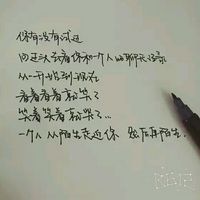 你有没有试过
回过头去看你和一个人的聊天记录
从一开始到现在
看着看着就笑了
笑着笑着就哭了...
一个人从陌生走近你 然后再陌生.